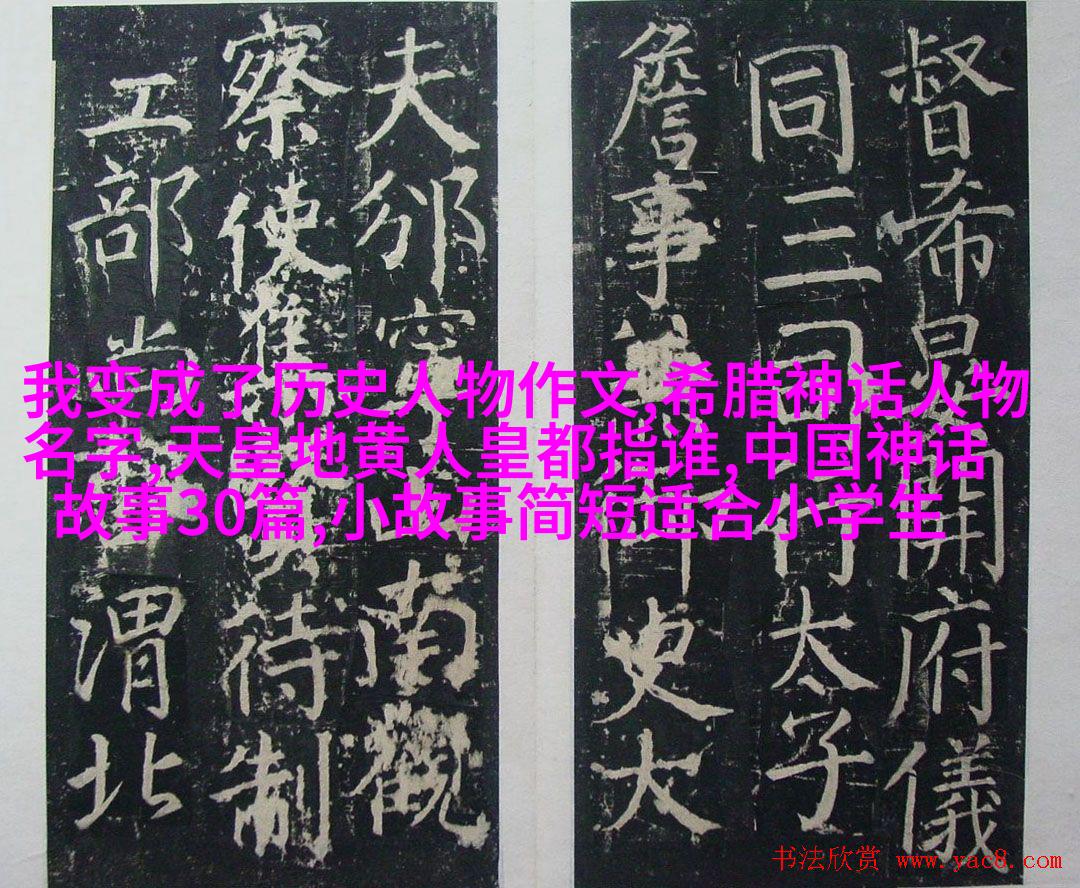 我变成了历史人物作文,希腊神话人物
名字,天皇地黄人皇都指谁,中国神话
故事30篇,小故事简短适合小学生
督希開府儀
同三司行太子
詹事史大
夫邠寧南觀
察使待制
工部尚渭北
书法欣赏 www.yac8.com